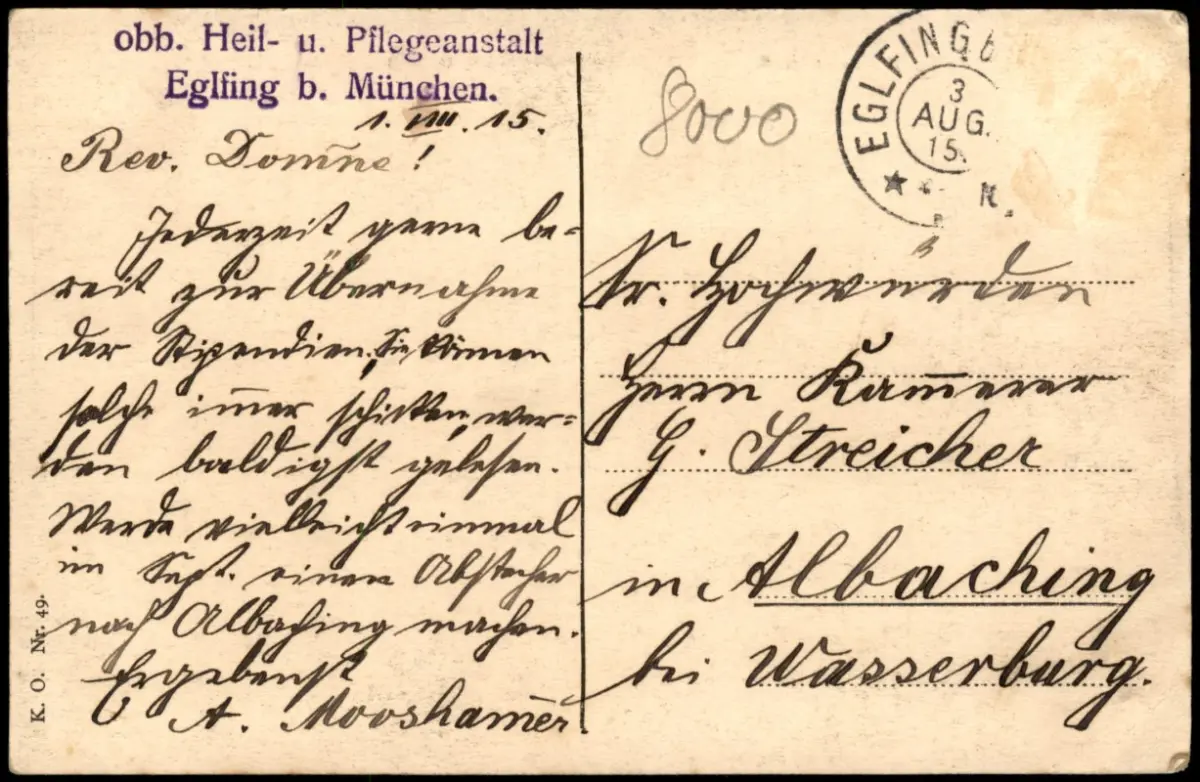 obb. Heil- u. Pflegeanstalt
Eglfing b. München.
1. VIII. 15.
Rev. Domn̄e!
Jederzeit gerne be=
reit zur Übernahme
der Stipendien, Sie können
solche im̄er schicken, wer=
den baldigst gelesen.
Werde vielleicht einmal
im Sept. einen Abstecher
nach Albaching machen.
Ergebenst
A. Moosham̄er
K. O. Nr. 49.
8000
EGLFING b
3
AUG.
15.
N.
Sr. Hochwürden
Herrn Kam̄erer
G. Streicher
in Albaching
bei Wasserburg.